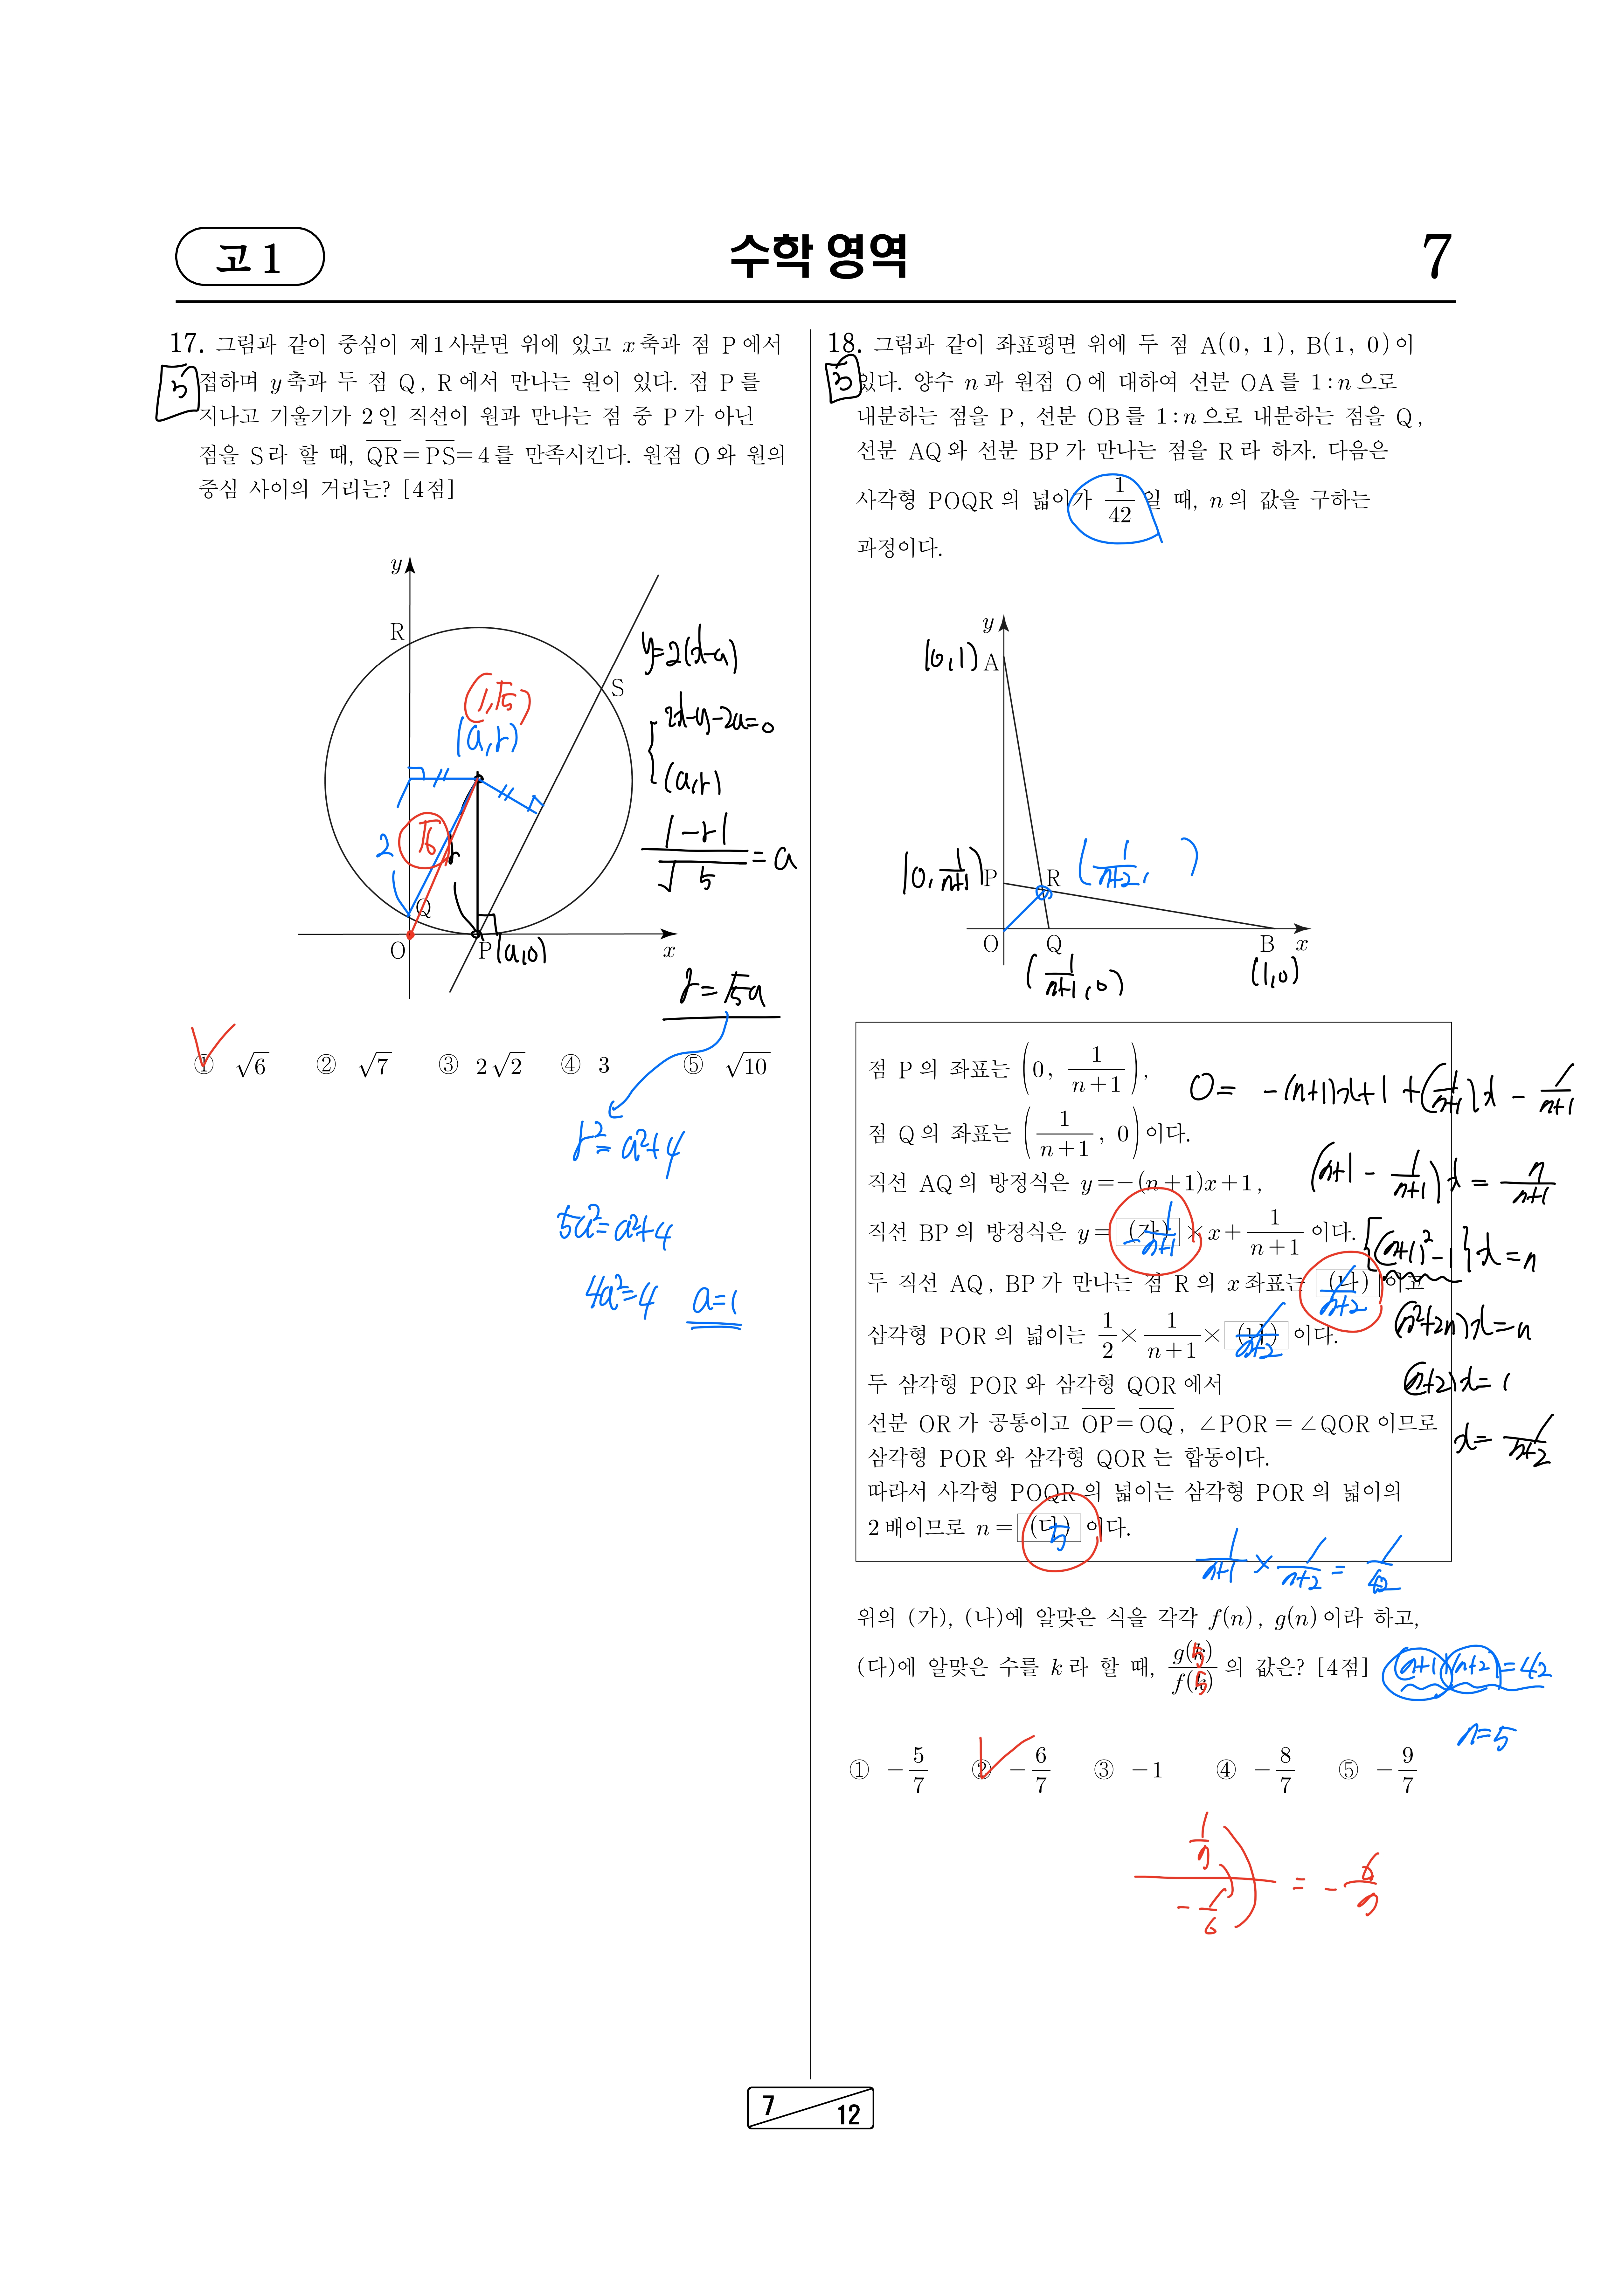 고 1
수학 영역
7
17. 그림과 같이 중심이 제1사분면 위에 있고 x축과 점 P에서
접하며 y축과 두 점 Q, R에서 만나는 원이 있다. 점 P를
지나고 기울기가 2인 직선이 원과 만나는 점 중 P가 아닌
점을 S라 할 때, QR=PS=4를 만족시킨다. 원점 O와 원의
중심 사이의 거리는? [4점]
5
y
R
S
Q
O
P
x
(1,√5)
(a,r)
2
√6
r
(a,0)
y=2(x-a)
2x-y-2a=0
(a,r)
|-r|/√5 = a
r=√5a
① √6 ② √7 ③ 2√2 ④ 3 ⑤ √10
r²=a²+4
5a²=a²+4
4a²=4 a=1
18. 그림과 같이 좌표평면 위에 두 점 A(0, 1), B(1, 0)이
있다. 양수 n과 원점 O에 대하여 선분 OA를 1:n으로
내분하는 점을 P, 선분 OB를 1:n으로 내분하는 점을 Q,
선분 AQ와 선분 BP가 만나는 점을 R라 하자. 다음은
사각형 POQR의 넓이가 1/42일 때, n의 값을 구하는
과정이다.
5
y
(0,1) A
(0, 1/(n+1)) P
R (1/(n+2), )
O Q B x
(1/(n+1), 0) (1,0)
점 P의 좌표는 (0, 1/(n+1)),
점 Q의 좌표는 (1/(n+1), 0)이다.
직선 AQ의 방정식은 y=-(n+1)x+1,
직선 BP의 방정식은 y= (가) ×x+1/(n+1) 이다.
-1/(n+1)
두 직선 AQ, BP가 만나는 점 R의 x좌표는 (나) 이고
1/(n+2)
삼각형 POR의 넓이는 1/2×1/(n+1)× (나) 이다.
1/(n+2)
두 삼각형 POR와 삼각형 QOR에서
선분 OR가 공통이고 OP=OQ, ∠POR=∠QOR이므로
삼각형 POR와 삼각형 QOR는 합동이다.
따라서 사각형 POQR의 넓이는 삼각형 POR의 넓이의
2배이므로 n= (다) 이다.
5
0= -(n+1)x+1+(1/(n+1))x - 1/(n+1)
(n+1 - 1/(n+1))x = n/(n+1)
{(n+1)²-1}x=n
(n²+2n)x=n
(n+2)x=1
x=1/(n+2)
1/(n+1) × 1/(n+2) = 1/42
위의 (가), (나)에 알맞은 식을 각각 f(n), g(n)이라 하고,
(다)에 알맞은 수를 k라 할 때, g(k)/f(k)의 값은? [4점]
5
5
(n+1)(n+2)=42
n=5
① -5/7 ② -6/7 ③ -1 ④ -8/7 ⑤ -9/7
(1/7)/(-1/6) = -6/7
7
12